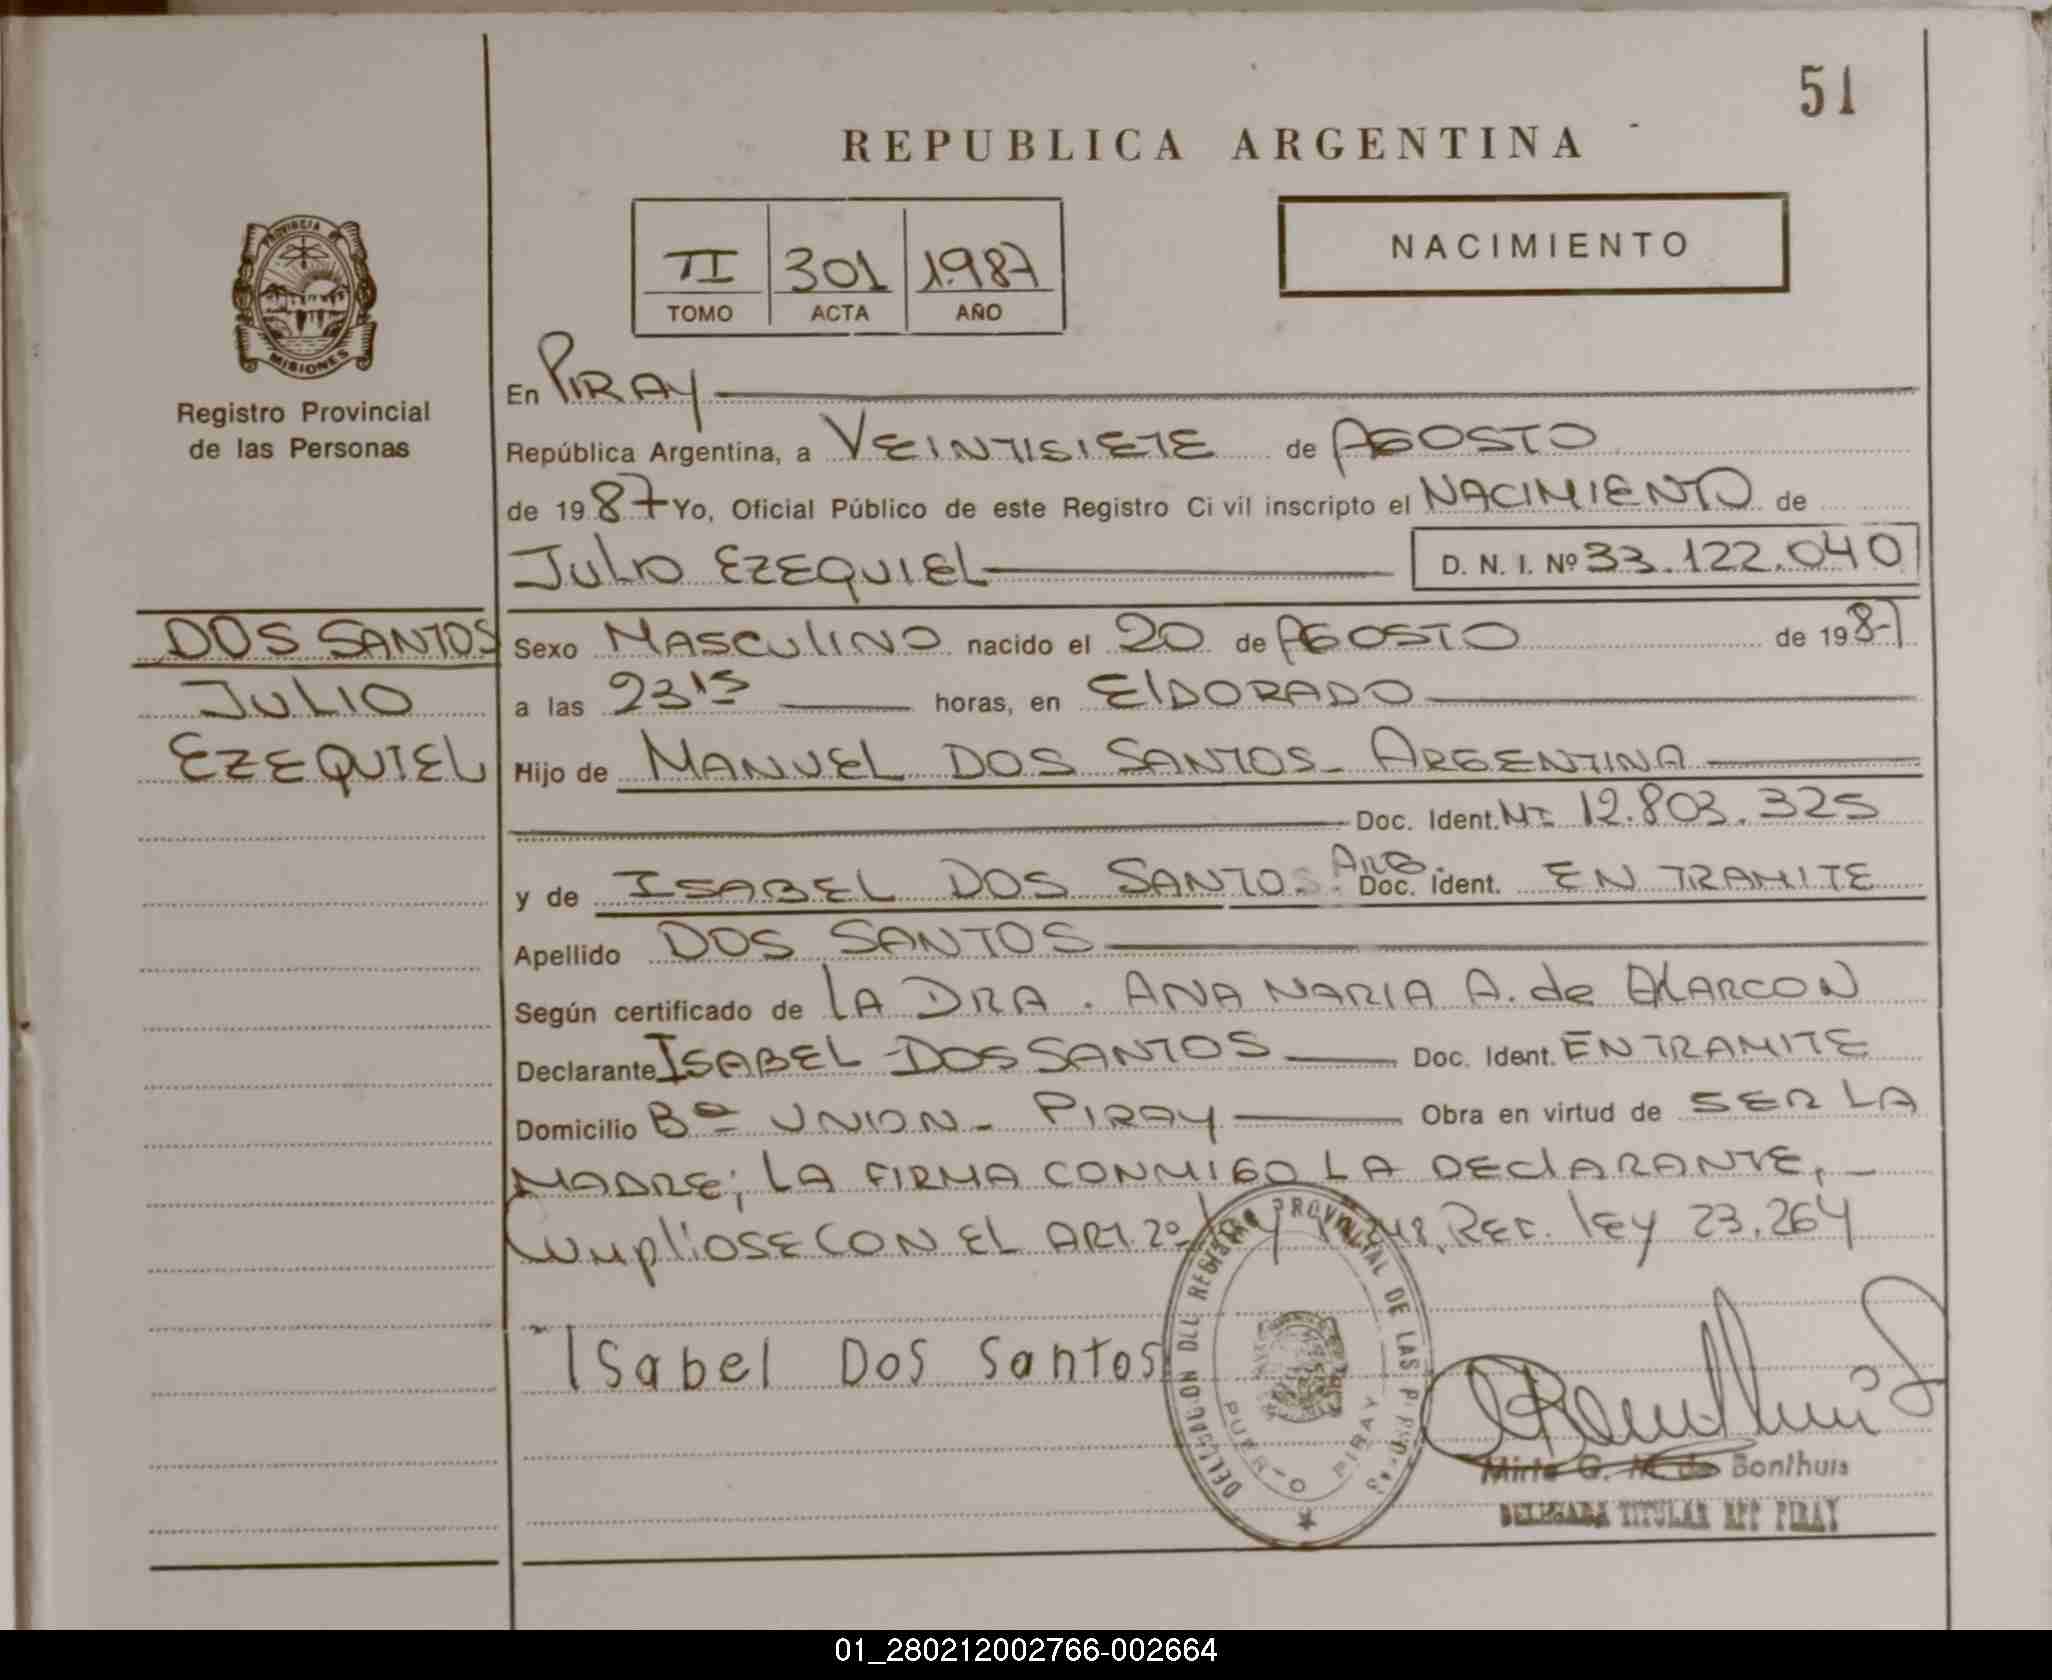 51
REPUBLICA ARGENTINA
PROVINCIA DE
MISIONES
Registro Provincial
de las Personas
TI 301 1.987
TOMO ACTA AÑO
NACIMIENTO
En PIRAY
República Argentina, a VEINTISIETE de AGOSTO
de 19 87 Yo, Oficial Público de este Registro Ci vil inscripto el NACIMIENTO de
JULIO EZEQUIEL D. N. I. Nº 33.122.040
DOS SANTOS
JULIO
EZEQUIEL
Sexo MASCULINO nacido el 20 de AGOSTO de 19 87
a las 23 15 horas, en ELDORADO
Hijo de MANUEL DOS SANTOS - ARGENTINA
Doc. Ident. MI 12.803.325
y de ISABEL DOS SANTOS. ARG. Doc. Ident. EN TRAMITE
Apellido DOS SANTOS
Según certificado de LA DRA. ANA MARIA A. de ALARCON
Declarante ISABEL DOS SANTOS Doc. Ident. EN TRAMITE
Domicilio Bº UNION - PIRAY Obra en virtud de SER LA
MADRE; LA FIRMA CONMIGO LA DECLARANTE,
CUMPLIOSE CON EL ART. 2º Ley REF. LEY 23.264
Isabel Dos Santos
DELEGACION DEL REGISTRO PROVINCIAL DE LAS PERSONAS
PUERTO PIRAY
Mirta G. M. de Bonthuis
DELEGADA TITULAR RPP PIRAY
01_280212002766-002664